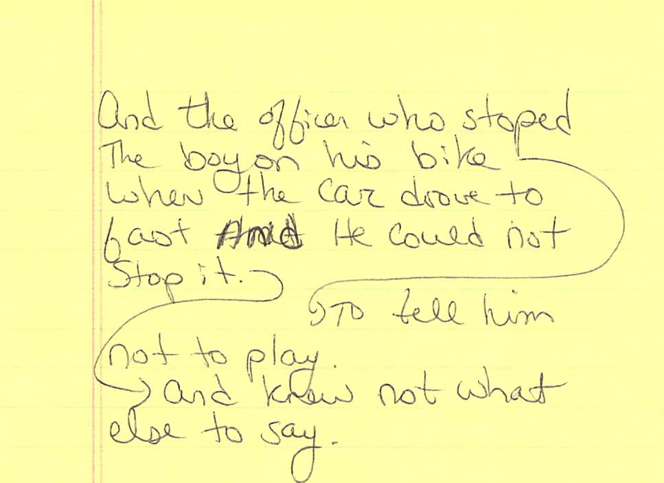 And the officer who stoped
The boy on his bike
when the car drove to
fast And He could not
Stop it.
To tell him
not to play.
and knew not what
else to say.